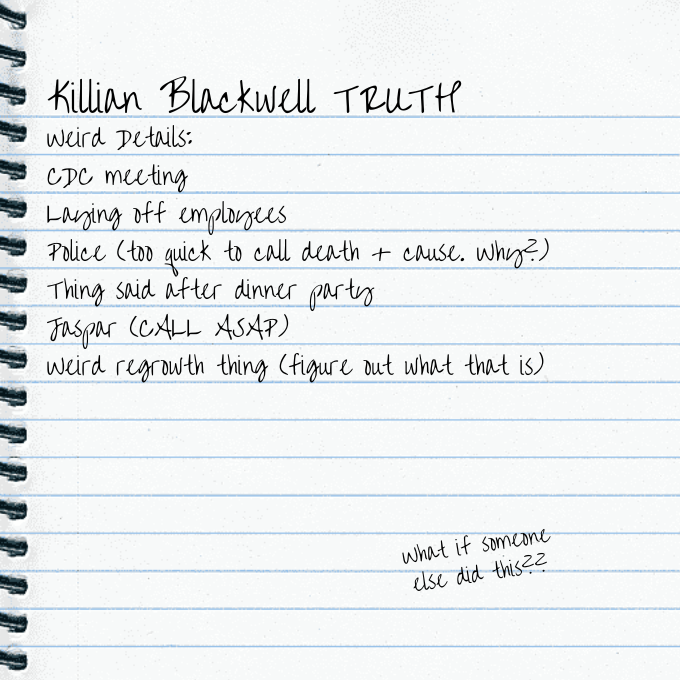 Killian Blackwell TRUTH
Weird Details:
CDC meeting
Laying off employees
Police (too quick to call death + cause. Why?)
Thing said after dinner party
Jaspar (CALL ASAP)
Weird regrowth thing (figure out what that is)
What if someone
else did this??